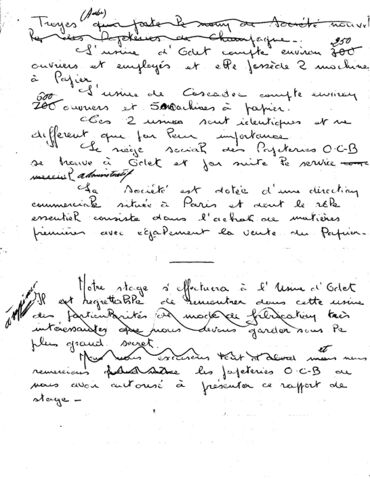 (Aube)
Troyes que porte le nom de Société nouvel
les des Papeteries de Champagne.
L'usine d'Odet compte environ 250
ouvriers et employés et elle possède 2 machines
à Papier
L'usine de Cascadec compte environ
600 200 ouvriers et 5 machines à papier.
Ces 2 usines sont identiques et ne
different que par leur importance
Le siège social des Papeteries O-C-B
se trouve à Odet et par suite le service
administratif
La Société est dotée d'une direction
commerciale située à Paris et dont le rôle
essentiel consiste dans l'achat de matières
premières avec également la vente du Papier.
Notre stage s'effectuera à l'Usine d'Odet
Il est regrettable de rencontrer dans cette usine
à supprimer
des particularités de mode de fabrication très
intéressantes que nous devons garder sous le
plus grand secret.
nous excusons tout d'abord et nous
remercions les papeteries O-C-B de
nous avoir autorisé à présenter ce rapport de
stage -